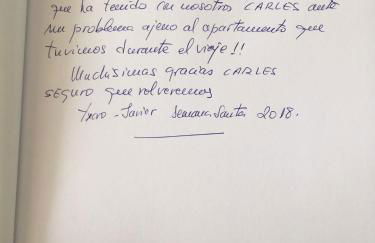 que ha tenido con nosotros CARLES ante
un problema ajeno al apartamento que
tuvimos durante el viaje!!
Muchisimas gracias CARLES
SEGURO que volveremos
- Javier Semana Santa 2018.